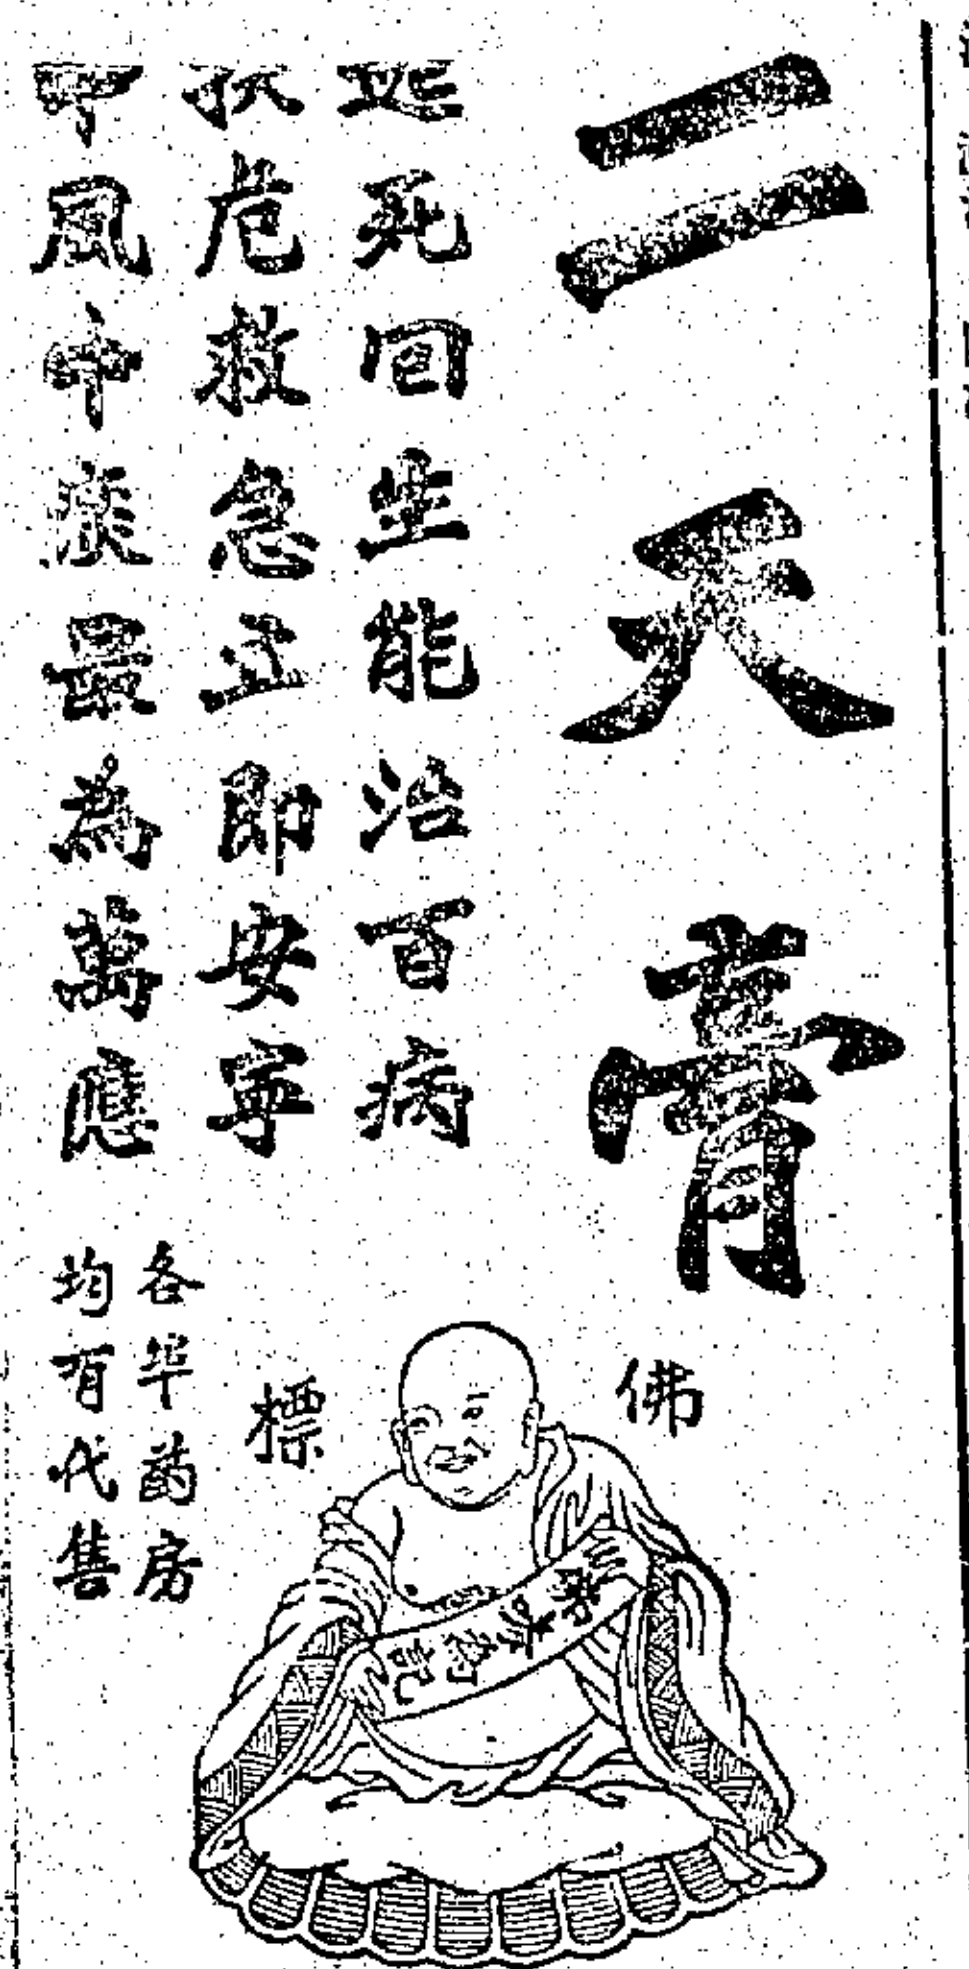 二天膏
起死回生能治百病
扶危救急立即安寧
中風中痰最為萬應
佛標
各埠葯房
均有代售